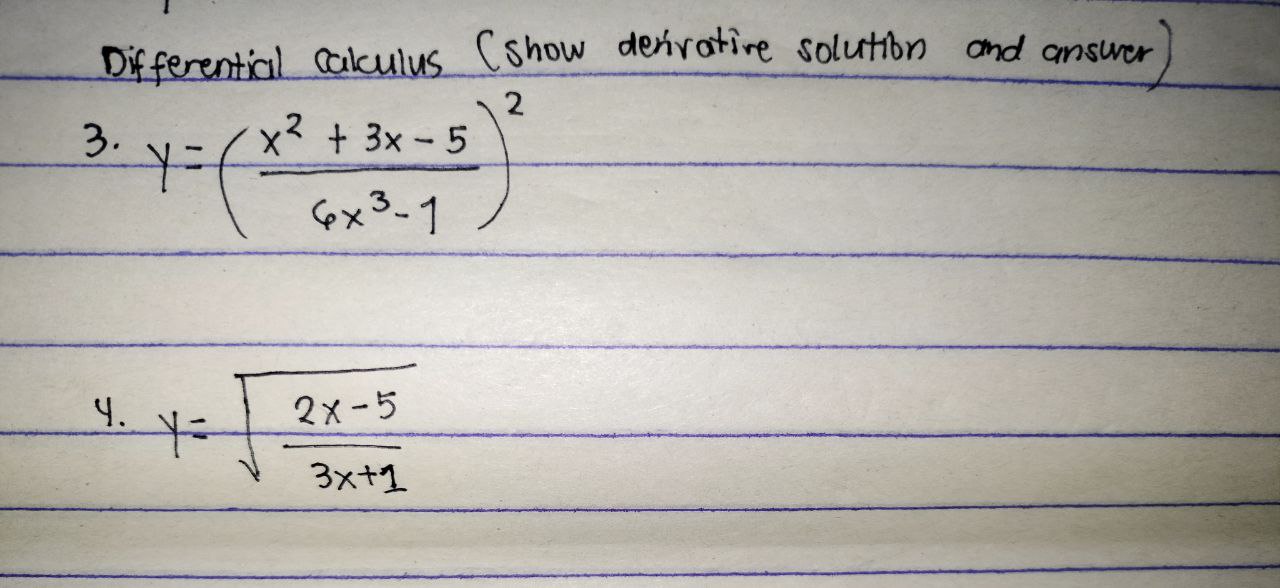 Differential Calculus (show derivative solution and answer)
3. y = ( x² + 3x - 5 / 6x³ - 1 )²
4. y = √ 2x - 5 / 3x + 1